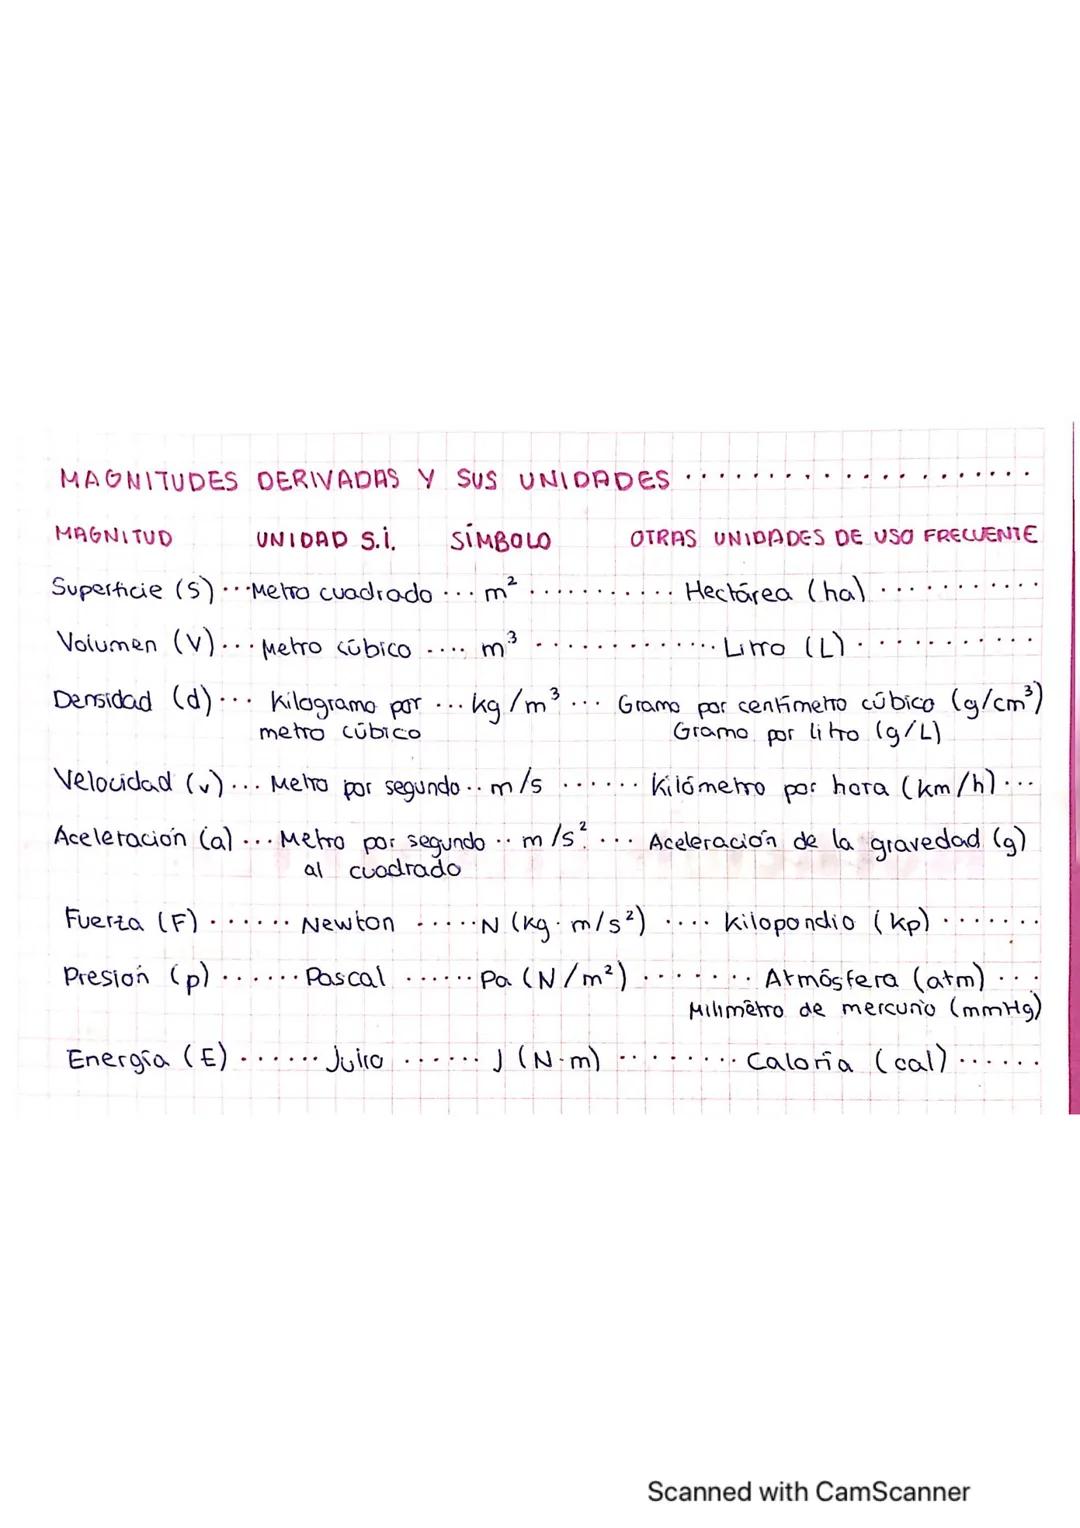 MAGNITUDES DERIVADAS Y SUS UNIDADES ....................
MAGNITUD UNIDAD S.I. SÍMBOLO OTRAS UNIDADES DE USO FRECUENTE
Superficie (S) ... Metro cuadrado ... m² ........... Hectárea (ha) ...........
Volumen (V) ... Metro cúbico .... m³ ............. Litro (L) ...........
Densidad (d) ... Kilogramo por ... kg/m³ ... Gramo por centímetro cúbico (g/cm³)
metro cúbico Gramo por litro (g/L)
Velocidad (v) ... Metro por segundo .. m/s ...... Kilómetro por hora (km/h) ...
Aceleración (a) ... Metro por segundo .. m/s² ... Aceleración de la gravedad (g)
al cuadrado
Fuerza (F) ...... Newton ..... N (kg·m/s²) .... Kilopondio (kp) .......
Presión (p) ...... Pascal ...... Pa (N/m²) ....... Atmósfera (atm) ...
Milímetro de mercurio (mmHg)
Energía (E) ...... Julio ...... J (N·m) ........ Caloría (cal) ......
Scanned with CamScanner